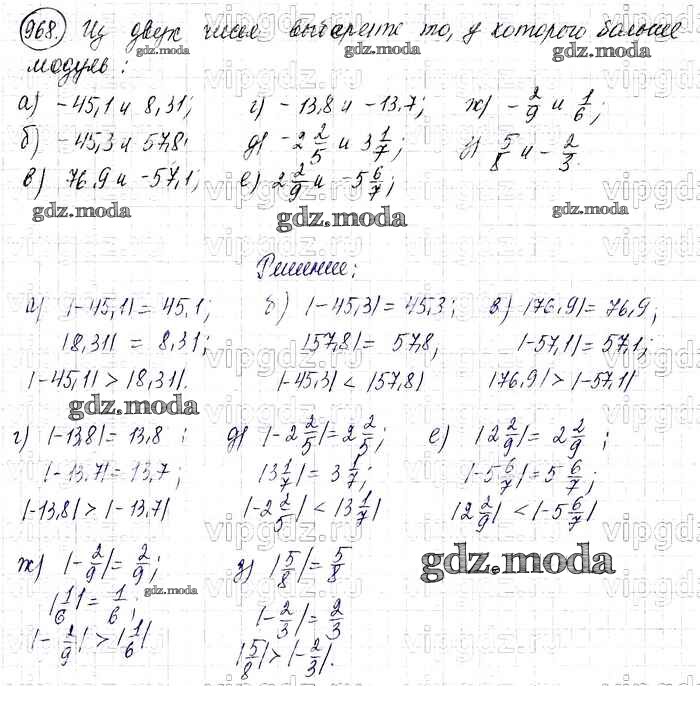 968. Из двух чисел выберите то, у которого больше
модуль:
а) -45,1 и 8,31; г) -13,8 и -13,7; ж) -2/9 и 1/6;
б) -45,3 и 57,8; д) -2 2/5 и 3 1/7; з) 5/8 и -2/3.
в) 76,9 и -57,1; е) 2 2/9 и -5 6/7;
Решение:
а) |-45,1| = 45,1; б) |-45,3| = 45,3; в) |76,9| = 76,9;
|8,31| = 8,31; |57,8| = 57,8, |-57,1| = 57,1;
|-45,1| > |8,31|. |-45,3| < |57,8| |76,9| > |-57,1|
г) |-13,8| = 13,8; д) |-2 2/5| = 2 2/5; е) |2 2/9| = 2 2/9;
|-13,7| = 13,7; |3 1/7| = 3 1/7; |-5 6/7| = 5 6/7;
|-13,8| > |-13,7| |-2 2/5| < |3 1/7| |2 2/9| < |-5 6/7|
ж) |-2/9| = 2/9; з) |5/8| = 5/8
|1/6| = 1/6; |-2/3| = 2/3
|-2/9| > |1/6| |5/8| > |-2/3|.
gdz.moda
vipgdz.ru